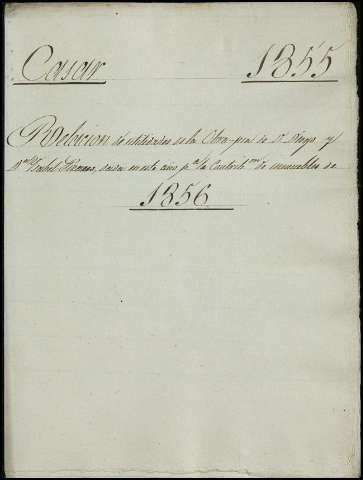 Casar 1855
Relacion de utilidades de la Obra-pia de Dn. Diego y
Dña. Isabel dada en este año pa. la Contribon. de inmuebles de
1856